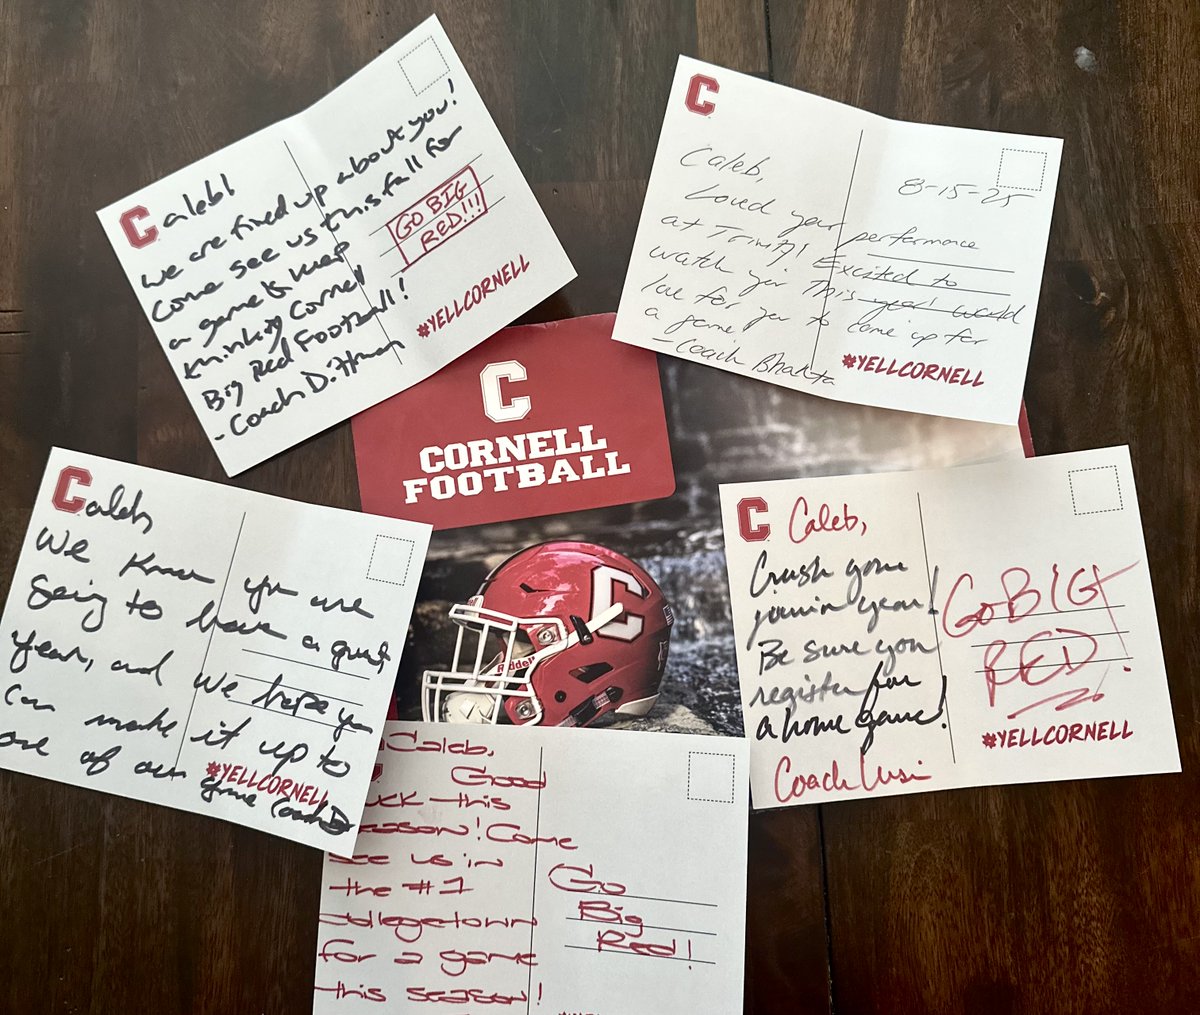 Caleb!
we are fired up about you!
Come see us this fall for
a game & keep
thinking Cornell
Big Red Football!
- Coach Dittman
GO BIG
RED!!!
#YELLCORNELL
C
Caleb,
8-15-25
Loved your performance
at Trinity! Excited to
watch you this year! would
love for you to come up for
a game!
- Coach Bhakta
#YELLCORNELL
C
CORNELL
FOOTBALL
Riddell
C
Caleb,
We know you are
going to have a great
year, and we hope you
can make it up to
one of our game Coach D
#YELLCORNELL
C Caleb,
Crush your
junior year!
Be sure you
register for
a home game!
Coach Cusi
GO BIG
RED!
#YELLCORNELL
Caleb,
Good
uck this
season! Come
see us in
the #1
collegetown
for a game
this season!
Go
Big
Red!